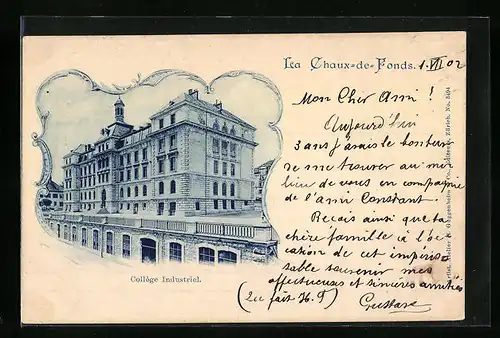 La Chaux-de-Fonds. 1. VII 02
Mon Cher Ami !
Aujourd'hui
3 ans j'avais le bonheur
de me trouver au mi-
lieu de vous en compagnie
de l'ami Constant.
Recois ainsi que ta
chère famille à l'oc-
casion de cet impéris-
sable souvenir mes
affectueuses et sincères amitiés
Gustave
Collège Industriel.